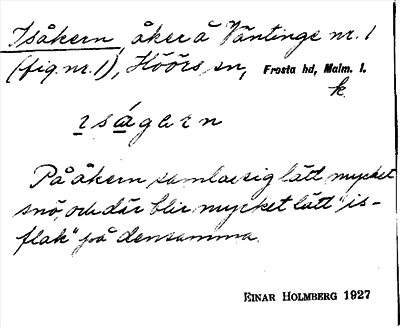 Isåkern, åker å Väntinge nr. 1
(fig. nr. 1), Höörs sn, Frosta hd, Malm. l.
k.
ɪsågɛrn
På åkern samlar sig lätt mycket
snö, och där blir mycket lätt "is-
flak" på densamma.
EINAR HOLMBERG 1927